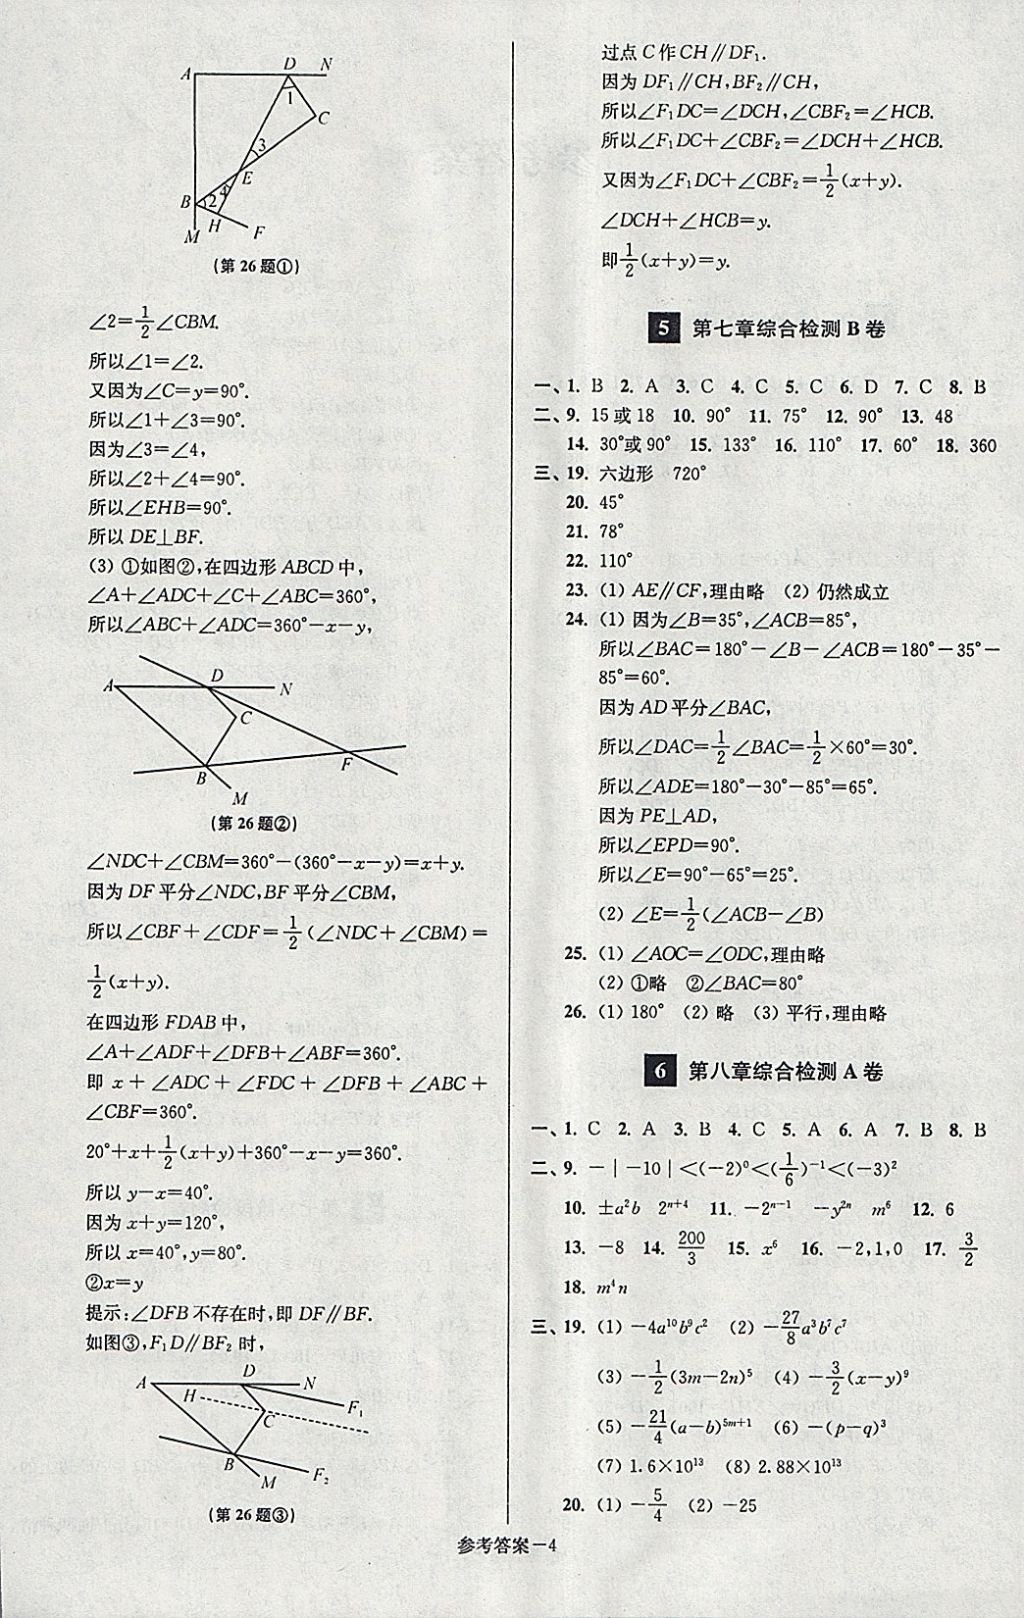 A D N
1
C
3
E
4
B 2
H
M F
(第26题①)
∠2=1/2∠CBM.
所以∠1=∠2.
又因为∠C=y=90°.
所以∠1+∠3=90°.
因为∠3=∠4,
所以∠2+∠4=90°.
所以∠EHB=90°.
所以 DE⊥BF.
(3) ①如图②,在四边形 ABCD 中,
∠A+∠ADC+∠C+∠ABC=360°,
所以∠ABC+∠ADC=360°-x-y,
A D N
C
B F
M
(第26题②)
∠NDC+∠CBM=360°-(360°-x-y)=x+y.
因为 DF 平分∠NDC,BF 平分∠CBM,
所以∠CBF+∠CDF=1/2(∠NDC+∠CBM)=
1/2(x+y).
在四边形 FDAB 中,
∠A+∠ADF+∠DFB+∠ABF=360°.
即 x+∠ADC+∠FDC+∠DFB+∠ABC+
∠CBF=360°.
20°+x+1/2(x+y)+360°-x-y=360°.
所以 y-x=40°.
因为 x+y=120°,
所以 x=40°,y=80°.
②x=y
提示:∠DFB 不存在时,即 DF∥BF.
如图③,F₁D∥BF₂ 时,
A D N
H F₁
C
B F₂
M
(第26题③)
过点 C 作 CH∥DF₁.
因为 DF₁∥CH,BF₂∥CH,
所以∠F₁DC=∠DCH,∠CBF₂=∠HCB.
所以∠F₁DC+∠CBF₂=∠DCH+∠HCB.
又因为∠F₁DC+∠CBF₂=1/2(x+y).
∠DCH+∠HCB=y.
即1/2(x+y)=y.
5 第七章综合检测 B 卷
一、1. B 2. A 3. C 4. C 5. C 6. D 7. C 8. B
二、9. 15或18 10. 90° 11. 75° 12. 90° 13. 48
14. 30°或90° 15. 133° 16. 110° 17. 60° 18. 360
三、19. 六边形 720°
20. 45°
21. 78°
22. 110°
23. (1) AE∥CF,理由略 (2) 仍然成立
24. (1) 因为∠B=35°,∠ACB=85°,
所以∠BAC=180°-∠B-∠ACB=180°-35°-
85°=60°.
因为 AD 平分∠BAC,
所以∠DAC=1/2∠BAC=1/2×60°=30°.
所以∠ADE=180°-30°-85°=65°.
因为 PE⊥AD,
所以∠EPD=90°.
所以∠E=90°-65°=25°.
(2) ∠E=1/2(∠ACB-∠B)
25. (1) ∠AOC=∠ODC,理由略
(2) ①略 ②∠BAC=80°
26. (1) 180° (2) 略 (3) 平行,理由略
6 第八章综合检测 A 卷
一、1. C 2. A 3. B 4. C 5. A 6. A 7. B 8. B
二、9. -|-10|<(-2)⁰<(1/6)⁻¹<(-3)²
10. ±a²b 2ⁿ⁺⁴ 11. -2ⁿ⁻¹ -y²ⁿ m⁶ 12. 6
13. -8 14. 200/3 15. x⁶ 16. -2,1,0 17. 3/2
18. m⁴n
三、19. (1) -4a¹⁰b⁹c² (2) -27/8a³b⁷c⁷
(3) -1/2(3m-2n)⁵ (4) -3/2(x-y)⁹
(5) -21/4(a-b)⁵ᵐ⁺¹ (6) -(p-q)³
(7) 1.6×10¹³ (8) 2.88×10¹³
20. (1) -5/4 (2) -25
参考答案-4